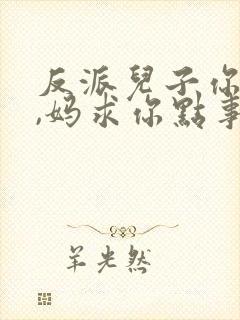 反派兒子你
,妈求你點事
羊光然